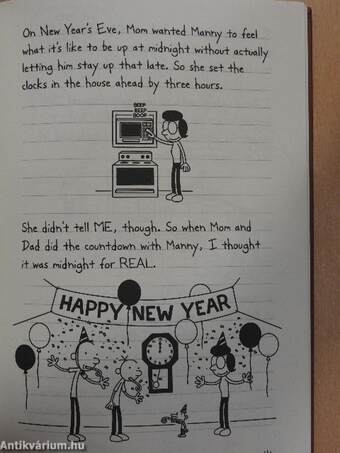 On New Year's Eve, Mom wanted Manny to feel
what it's like to be up at midnight without actually
letting him stay up that late. So she set the
clocks in the house ahead by three hours.
BEEP
BEEP
BOOP
She didn't tell ME, though. So when Mom and
Dad did the countdown with Manny, I thought
it was midnight for REAL.
HAPPY NEW YEAR
Antikvárium.hu